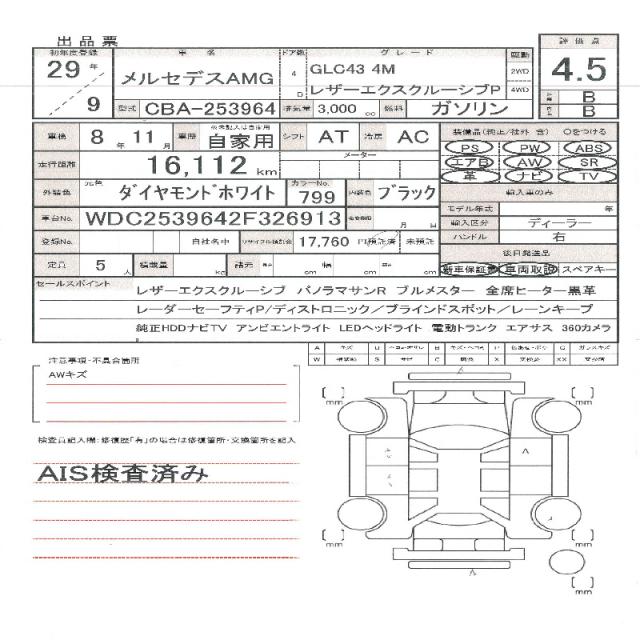 出品票
初年度登録 車名 ドア数 グレード 駆動 評価点
29年 メルセデスAMG 4D GLC43 4M 2WD 4.5
9 レザーエクスクルーシブP 4WD B
型式 CBA-253964 排気量 3,000 cc 燃料 ガソリン B
車検 8年11月 車歴 自家用 シフト AT 冷房 AC 装備品(純正/社外 含) ○をつける
PS PW ABS
走行距離 16,112 km メーター エアB AW SR
革 ナビ TV
外装色 元色 ダイヤモンドホワイト カラーNo. 799 内装色 ブラック 輸入車のみ
モデル年式 年
車台No. WDC2539642F326913 月 日 輸入区分 ディーラー
登録No. 自社名中 リサイクル預託金 17,760 円預託済 未預託 ハンドル 右
後日発送品
定員 5人 積載量 kg 諸元 cm 幅 cm cm 新車保証書 車両取説 スペアキー
セールスポイント レザーエクスクルーシブ パノラマサンR ブルメスター 全席ヒーター黒革
レーダーセーフティP/ディストロニック/ブラインドスポット/レーンキープ
純正HDDナビTV アンビエントライト LEDヘッドライト 電動トランク エアサス 360カメラ
A キズ U B キズ・ヘコミ P G ガラスキズ
W S サビ C X
注意事項・不具合箇所
AWキズ
検査員記入欄:修復歴「有」の場合は修復箇所・交換箇所を記入
AIS検査済み
mm mm
A
A
mm mm
A
mm